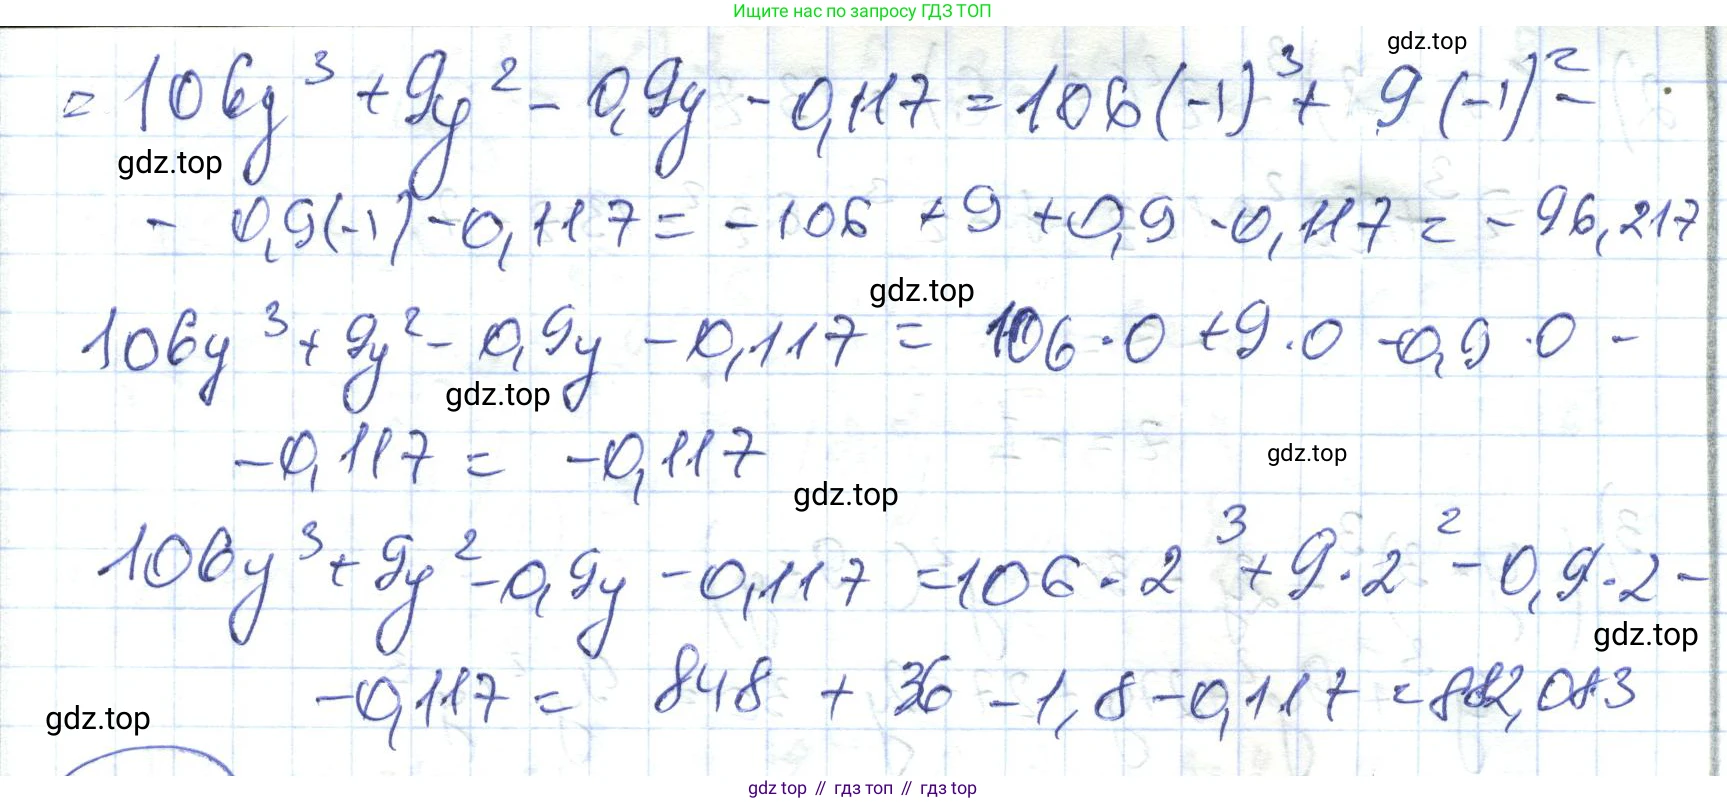 Ищите нас по запросу ГДЗ ТОП
gdz.top
= 106y³ + 9y² - 0,9y - 0,117 = 106(-1)³ + 9(-1)² -
gdz.top
- 0,9(-1) - 0,117 = -106 + 9 + 0,9 - 0,117 = -96,217
gdz.top
106y³ + 9y² - 0,9y - 0,117 = 106·0 + 9·0 - 0,9·0 -
gdz.top
-0,117 = -0,117
gdz.top
gdz.top
106y³ + 9y² - 0,9y - 0,117 = 106·2³ + 9·2² - 0,9·2 -
gdz.top
-0,117 = 848 + 36 - 1,8 - 0,117 = 882,083
gdz.top
gdz top // гдз топ // gdz top